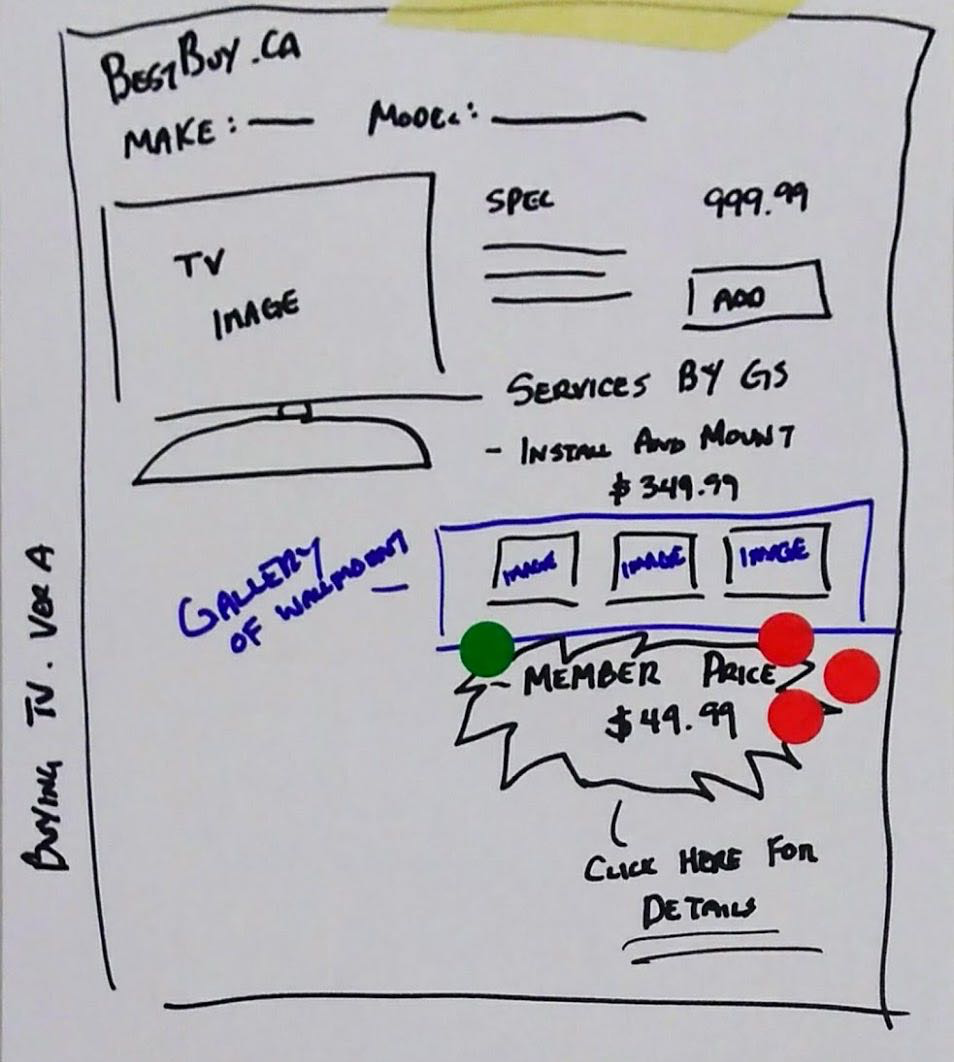 BESTBUY.CA
MAKE: MODEL:
TV
IMAGE
SPEC
999.99
ADD
SERVICES BY GS
- INSTALL AND MOUNT
$349.99
GALLERY
OF WALLMOUNT
IMAGE IMAGE IMAGE
- MEMBER PRICE
$49.99
CLICK HERE FOR
DETAILS
BUYING TV. VER A